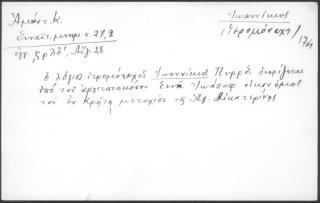 Ἀμάντ. Κ.
Σιναϊτ. μνημ. σ. 27, 2
Ἰωαννίκιος
(ἱερομόναχ.)
Αὐγ. 28
ὁ λόγιος ἱερομόναχος Ἰωαννίκιος διορίζεται
ὑπὸ τοῦ ἀρχιεπισκόπου Σινᾶ Ἰωάσαφ οἰκονόμος
τοῦ ἐν Κρήτῃ μετοχίου τῆς Ἁγ. Αἰκατερίνης